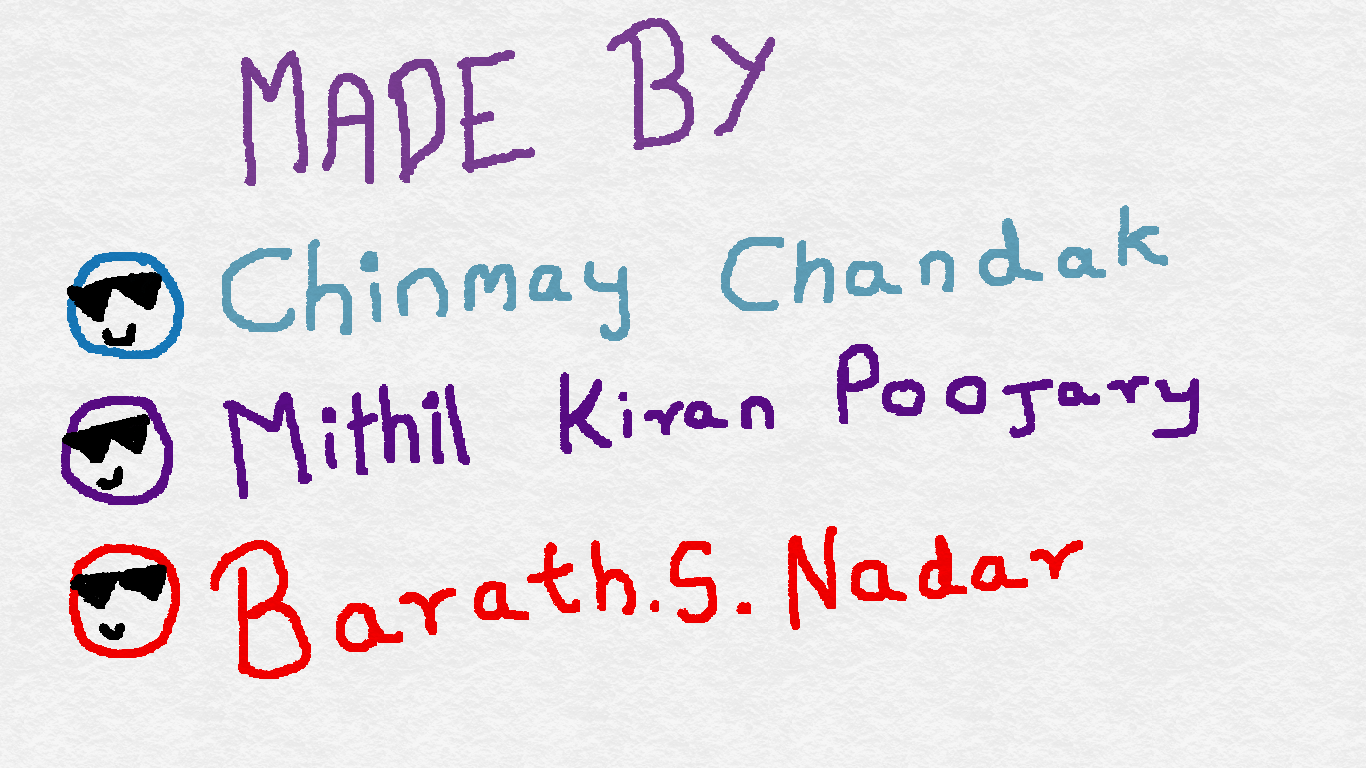 MADE BY
Chinmay Chandak
Mithil Kiran Poojary
Barath.S. Nadar